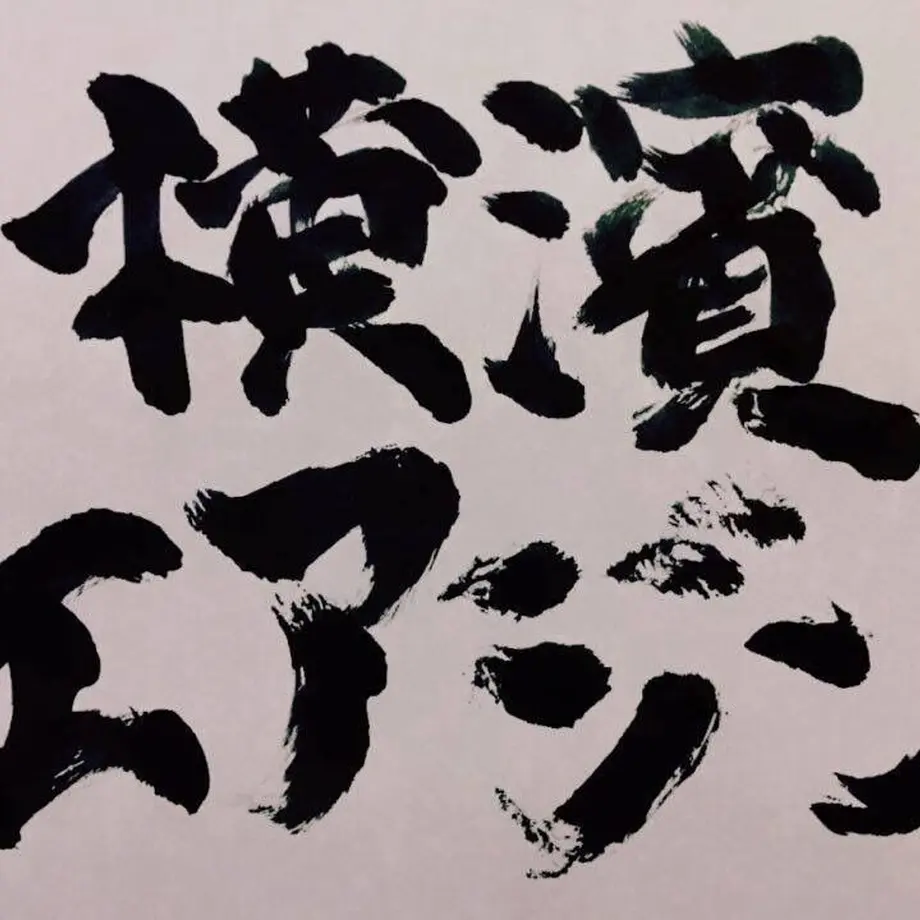 横濱
エアジン